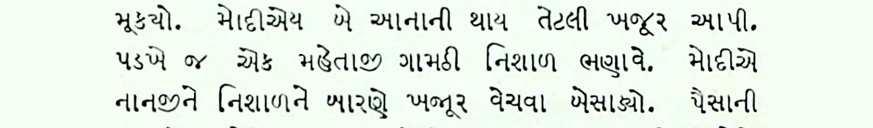 મૂકયો. મોદીએય બે આનાની થાય તેટલી ખજૂર આપી.
પડખે જ એક મહેતાજી ગામઠી નિશાળ ભણાવે. મોદીએ
નાનજીને નિશાળને બારણે ખજૂર વેચવા બેસાડ્યો. પૈસાની